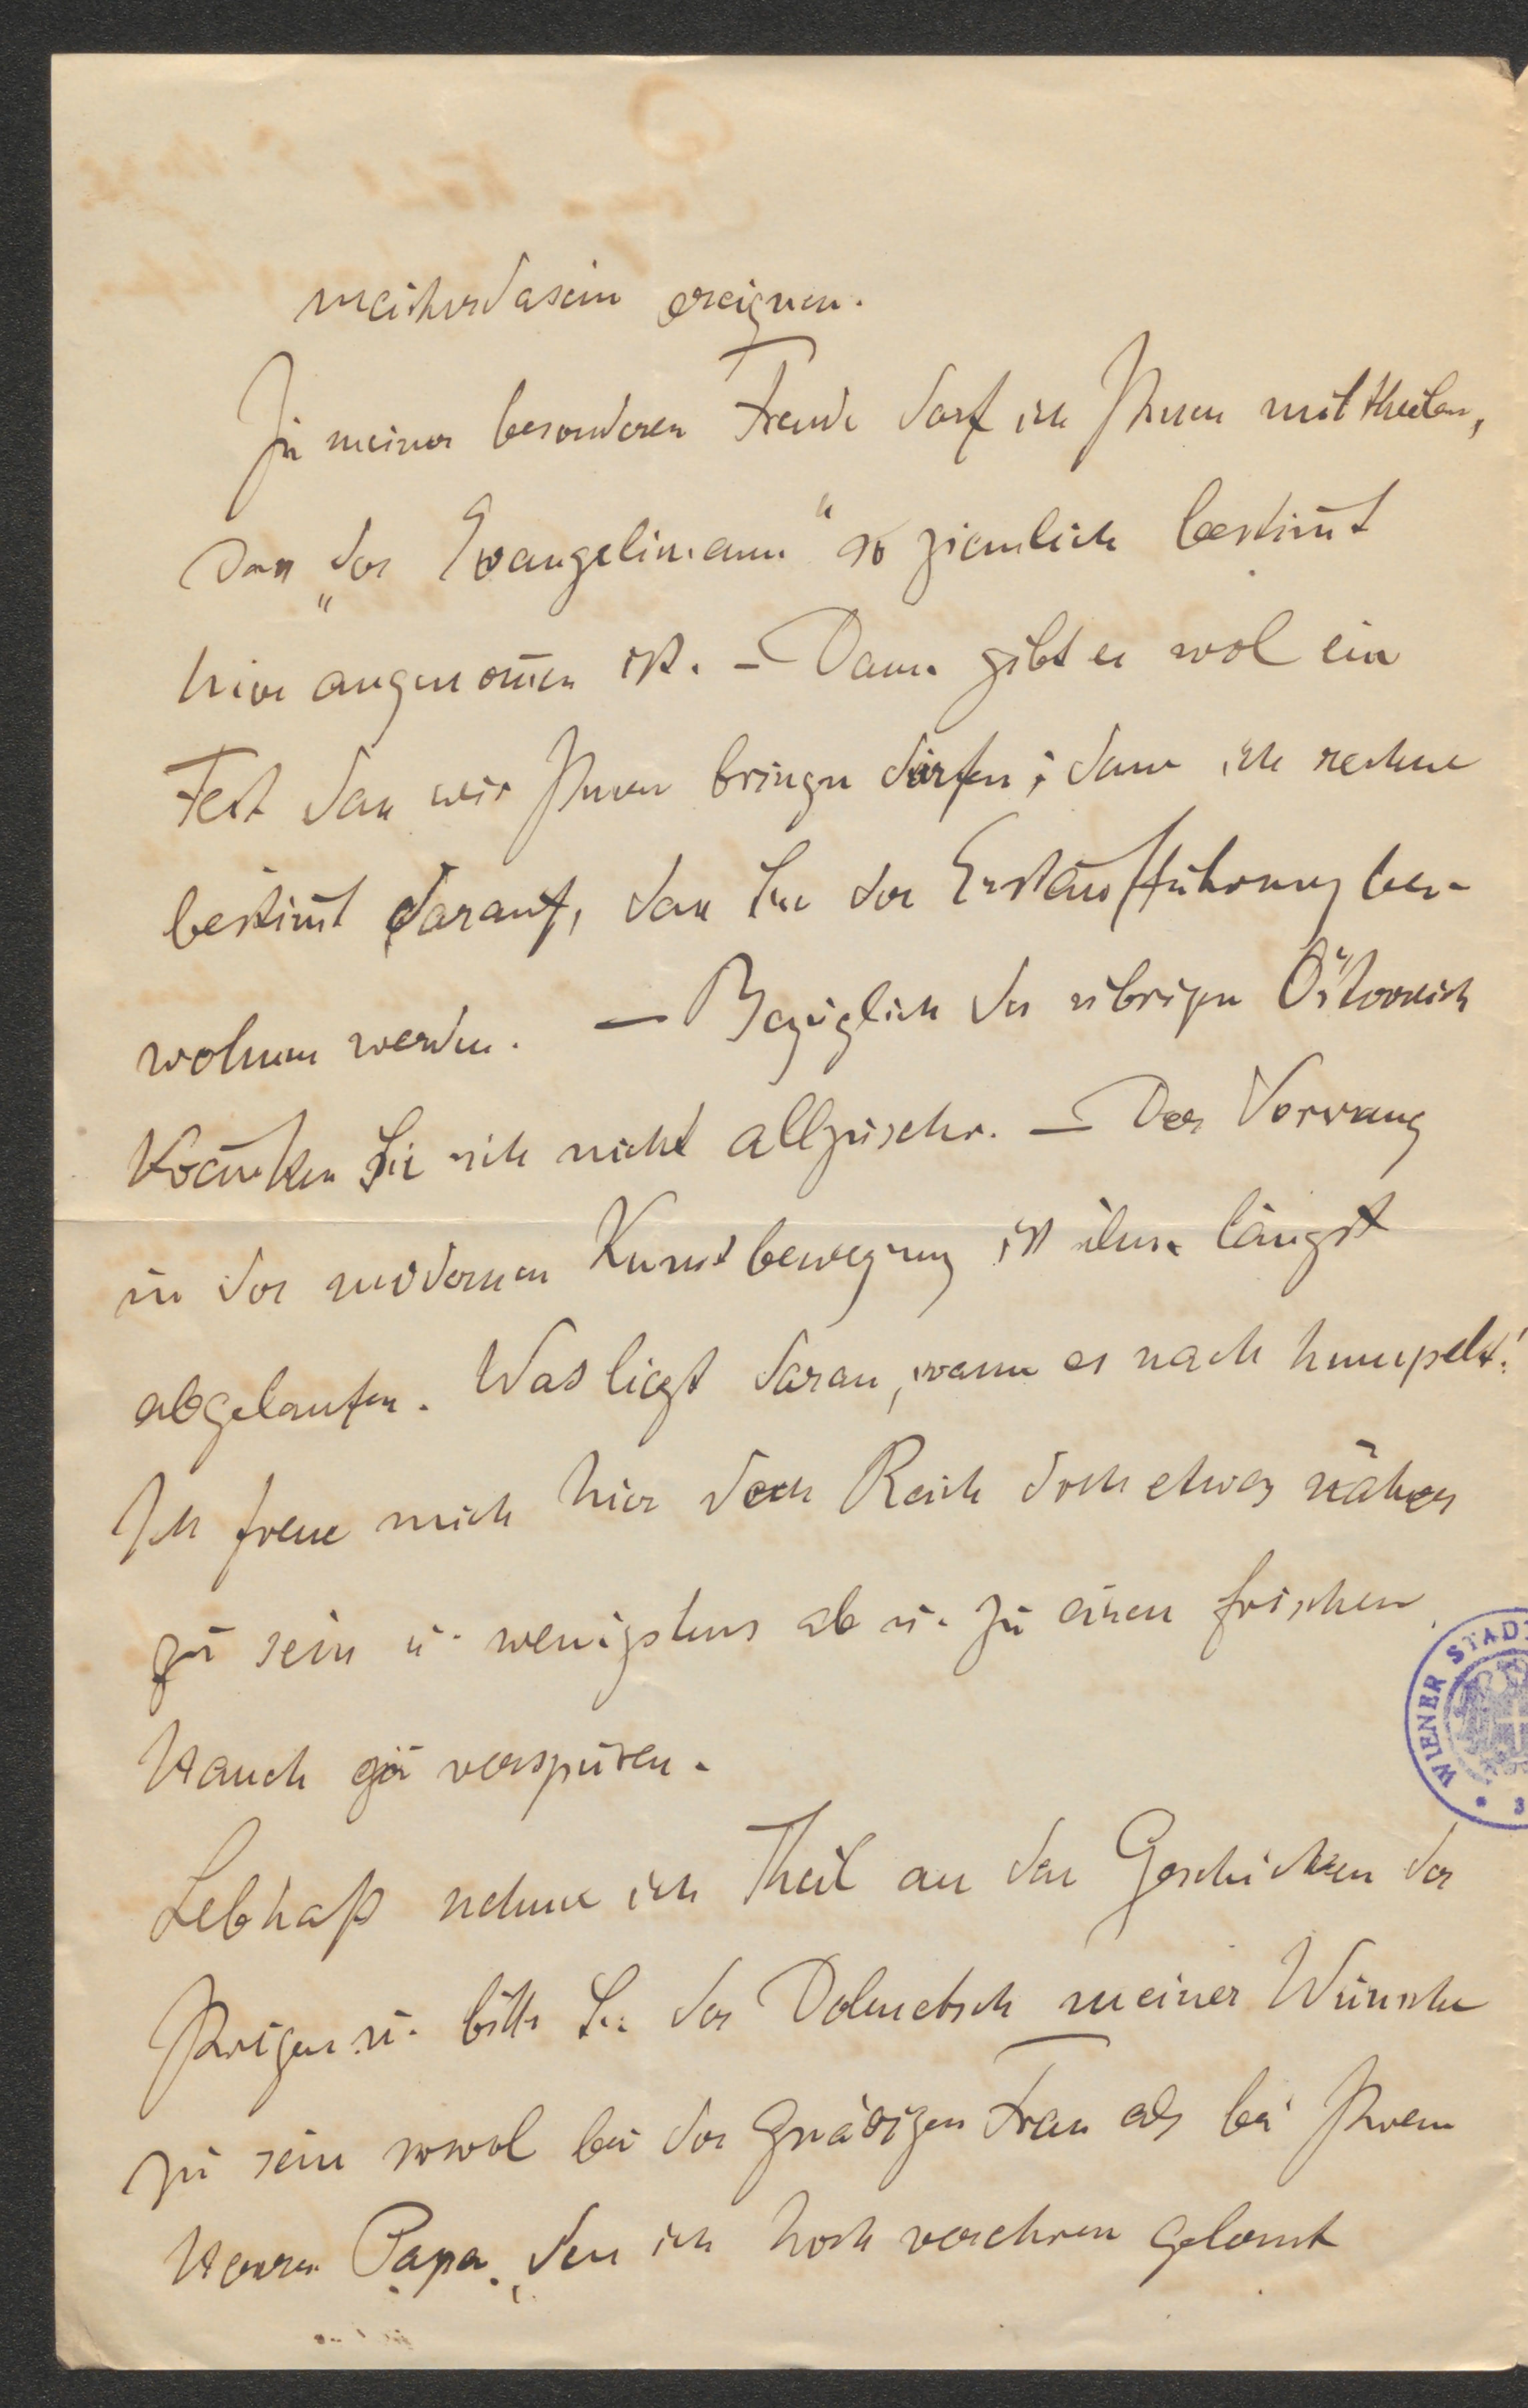 meisterdasein ereignen.
Zu meiner besonderen Freude darf ich Ihnen mittheilen,
dass „der Evangelimann“ so ziemlich bestim̄t
hier angenom̄en ist. – Dann gibt es wol ein
Fest das wir Ihnen bringen dürfen; denn ich rechne
bestim̄t darauf, dass Sie der Erstaufführung bei-
wohnen werden. – Bezüglich des übrigen Österreich
kränken Sie sich nicht allzusehr. – Der Vorrang
in der modernen Kunstbewegung ist ihm längst
abgelaufen. Was liegt daran, wann es nach humpelt!
Ich freue mich hier dem Reich doch etwas näher
zu sein u. wenigstens ab u. zu einen frischen
Hauch zu verspüren.
Lebhaft nehme ich Theil an den Geschicken der
Ihrigen u. bitte Sie der Dolmetsch meiner Wünsche
zu sein sowol bei der gnädigen Frau als bei Ihrem
Herrn Papa, den ich hoch verehren gelernt
WIENER STAD